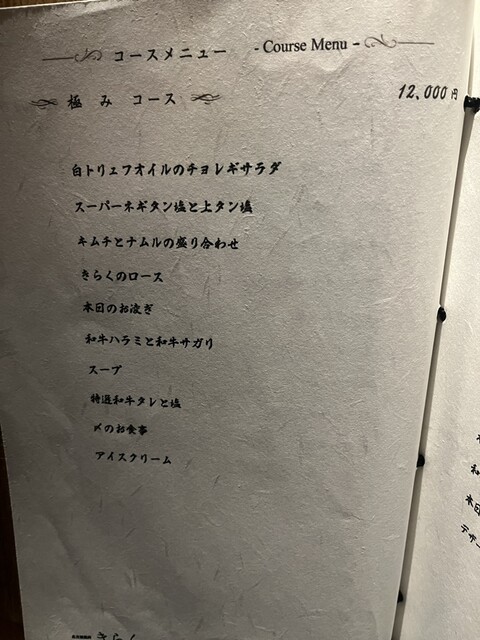 コースメニュー - Course Menu -
極 み コース 12,000 円
白トリュフオイルのチョレギサラダ
スーパーネギタン塩と上タン塩
キムチとナムルの盛り合わせ
きらくのロース
本日のお凌ぎ
和牛ハラミと和牛サガリ
スープ
特選和牛タレと塩
〆のお食事
アイスクリーム
きらく